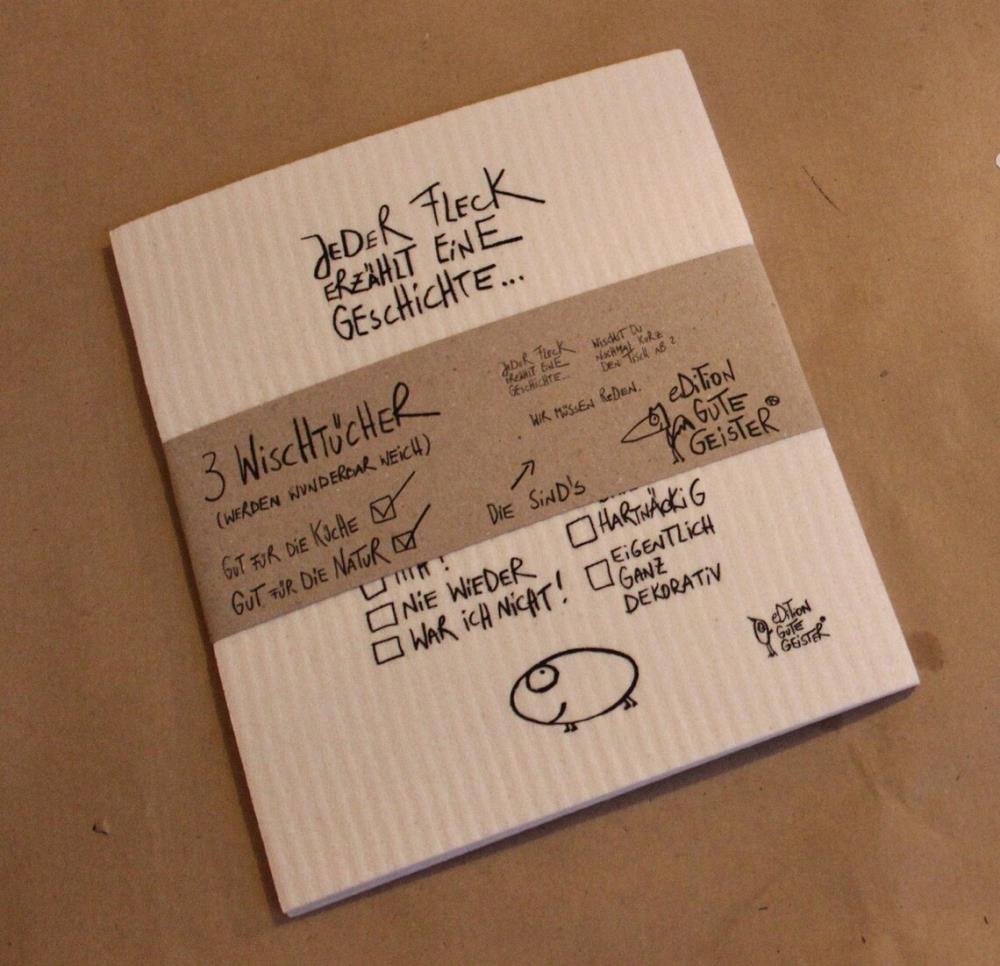 JEDER FLECK
ERZÄHLT EINE
GESCHICHTE...
JEDER FLECK
ERZÄHLT EINE
GESCHICHTE...
WISCHST DU
NOCHMAL KURZ
DEN TISCH AB?
WIR MÜSSEN REDEN.
3 WISCHTÜCHER
(WERDEN WUNDERBAR WEICH)
GUT FÜR DIE KÜCHE
GUT FÜR DIE NATUR
DIE SIND'S
EDITION
GUTE
GEISTER®
NIE WIEDER
WAR ICH NICHT!
HARTNÄCKIG
EIGENTLICH
GANZ
DEKORATIV
EDITION
GUTE
GEISTER®